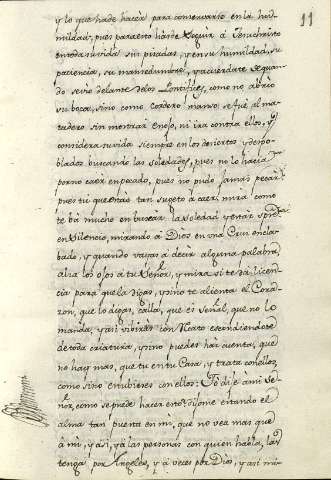 11
y lo que hade hacer para conservarse en la hu-
mildad, pues para esto hade seguir a Jesuchristo
en toda su vida sus pisadas, y en su humildad, su
paciencia, su mansedumbre, y acuerdate de quan-
do se vio delante de los Pontifices, como no abrio
su boca, sino como cordero manso se fue al ma-
tadero sin mostrar enojo, ni ira contra ellos, y
considera su vida siempre en los desiertos y despo-
blados buscando las soledades, pues no lo hacia
por no caer en pecado, pues no pudo jamas pecar,
pues tu que estas tan sujeto a caer: mira como
te va mucho en buscar la soledad y estar
en silencio, mirando a Dios en una Cruz encla-
bado, y quando vayas a decir alguna palabra,
alza los ojos a tu Señor, y mira si te da licen-
cia para que la digas, y sino te alienta el Cora-
zon, que lo digas, calla, que es señal, que no lo
manda, y asi viviras escondiendote
de toda criatura, y sino puedes haz cuenta, que
no hay mas, que tu en tu Casa, y trata con ellos,
como sino estubieses con ellos: Yo dije a mi Se-
ñor, como se puede hacer esto: dijome estando el
alma tan puesta en mi, que no vea mas que
a mi, y asi, y a las personas con quien habla, las
tenga por Angeles, y a veces por Dios, y asi mi-